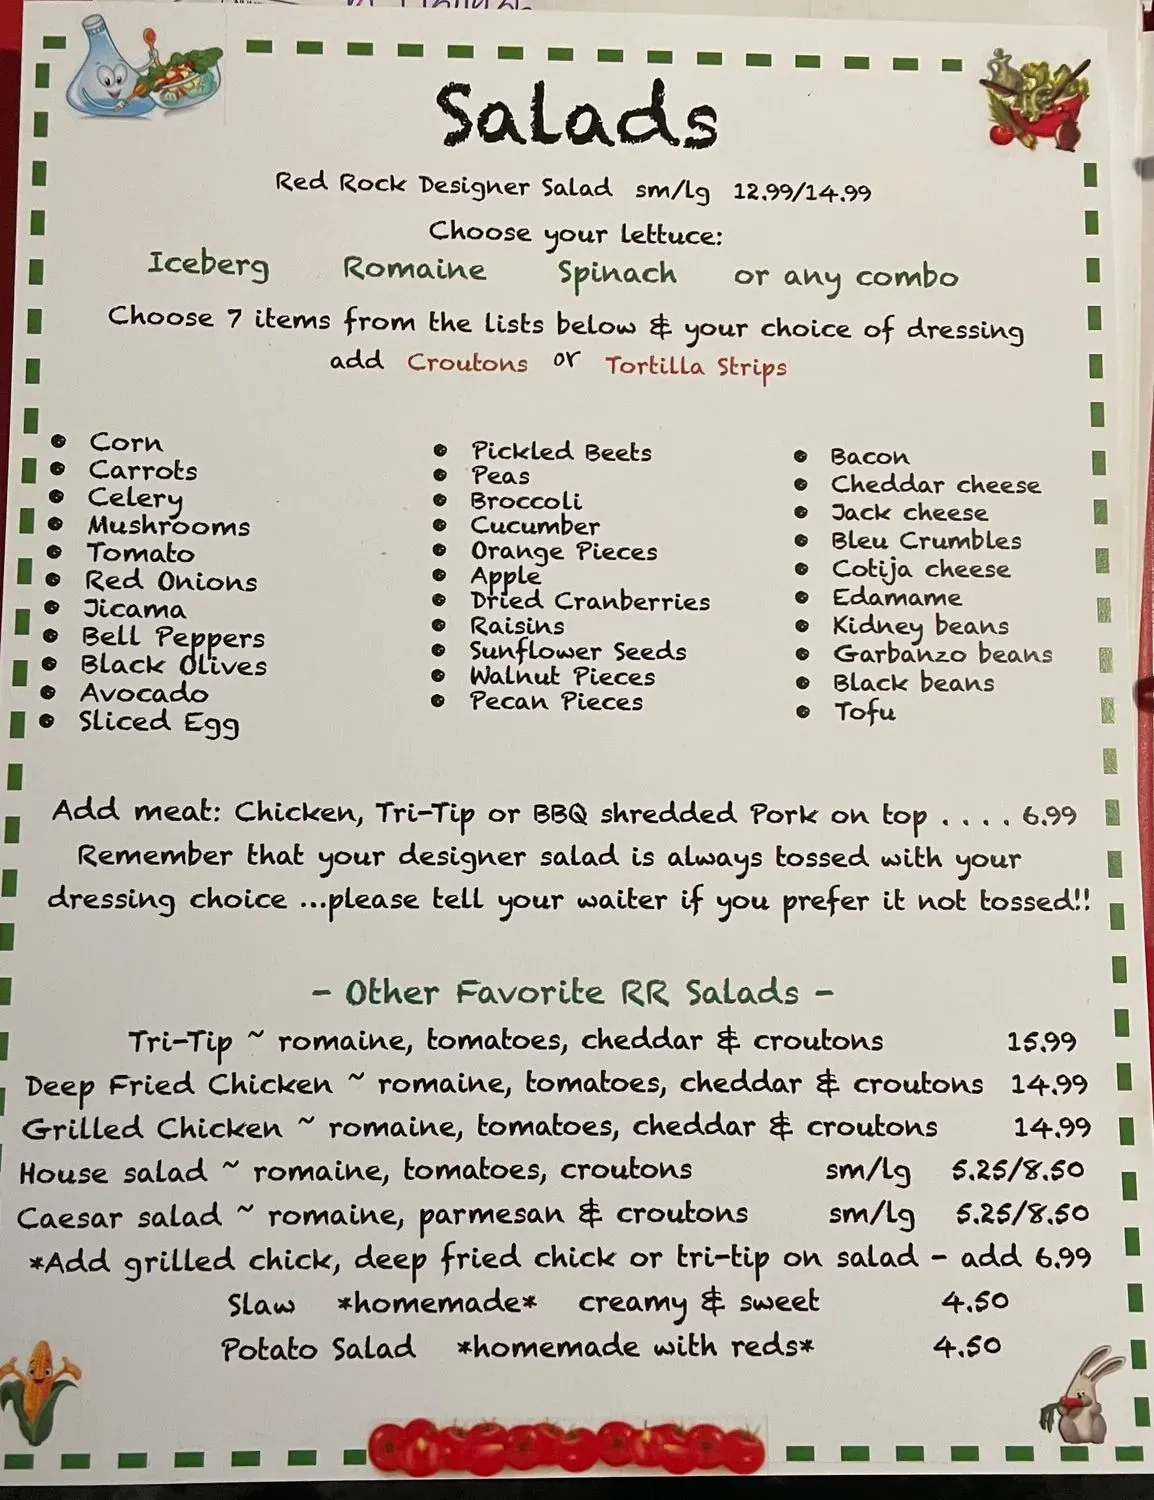 Salads
Red Rock Designer Salad sm/lg 12.99/14.99
Choose your lettuce:
Iceberg Romaine Spinach or any combo
Choose 7 items from the lists below & your choice of dressing
add Croutons or Tortilla Strips
• Corn
• Carrots
• Celery
• Mushrooms
• Tomato
• Red Onions
• Jicama
• Bell Peppers
• Black Olives
• Avocado
• Sliced Egg
• Pickled Beets
• Peas
• Broccoli
• Cucumber
• Orange Pieces
• Apple
• Dried Cranberries
• Raisins
• Sunflower Seeds
• Walnut Pieces
• Pecan Pieces
• Bacon
• Cheddar cheese
• Jack cheese
• Bleu Crumbles
• Cotija cheese
• Edamame
• Kidney beans
• Garbanzo beans
• Black beans
• Tofu
Add meat: Chicken, Tri-Tip or BBQ shredded Pork on top . . . . 6.99
Remember that your designer salad is always tossed with your
dressing choice ...please tell your waiter if you prefer it not tossed!!
- Other Favorite RR Salads -
Tri-Tip ~ romaine, tomatoes, cheddar & croutons 15.99
Deep Fried Chicken ~ romaine, tomatoes, cheddar & croutons 14.99
Grilled Chicken ~ romaine, tomatoes, cheddar & croutons 14.99
House salad ~ romaine, tomatoes, croutons sm/lg 5.25/8.50
Caesar salad ~ romaine, parmesan & croutons sm/lg 5.25/8.50
*Add grilled chick, deep fried chick or tri-tip on salad - add 6.99
Slaw *homemade* creamy & sweet 4.50
Potato Salad *homemade with reds* 4.50